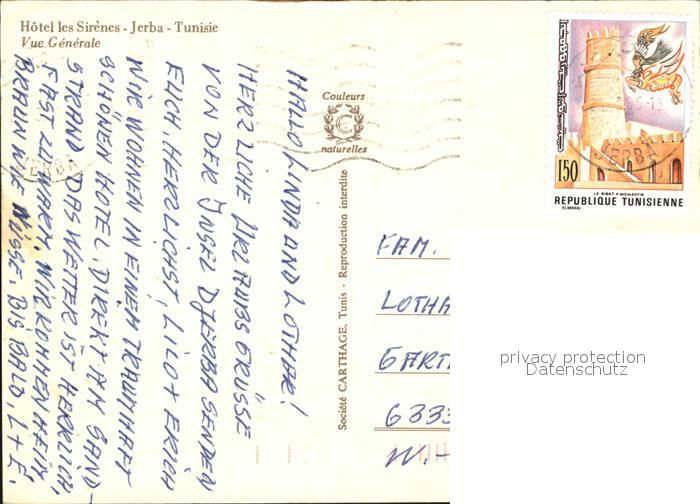 Hôtel les Sirènes - Jerba - Tunisie
Vue Générale
HALLO LINDA UND LOTHAR!
HERZLICHE URLAUBSGRÜSSE
VON DER INSEL DJERBA SENDEN
EUCH HERZLICHST, LILO + ERICH
WIR WOHNEN IN EINEM TRAUMHAFT
SCHÖNEN HOTEL, DIREKT AM SAND-
STRAND. DAS WETTER IST HERRLICH,
FAST ZU WARM. WIR KOMMEN HEIM,
BRAUN WIE NÜSSE. BIS BALD, L + E.
Couleurs
C
naturelles
Société CARTHAGE, Tunis - Reproduction interdite
FAM.
LOTHA
GART
6333
W.-
150
LE RIBAT • MONASTIR
REPUBLIQUE TUNISIENNE
ELMEKKI
JERBA
JERBA
privacy protection
Datenschutz